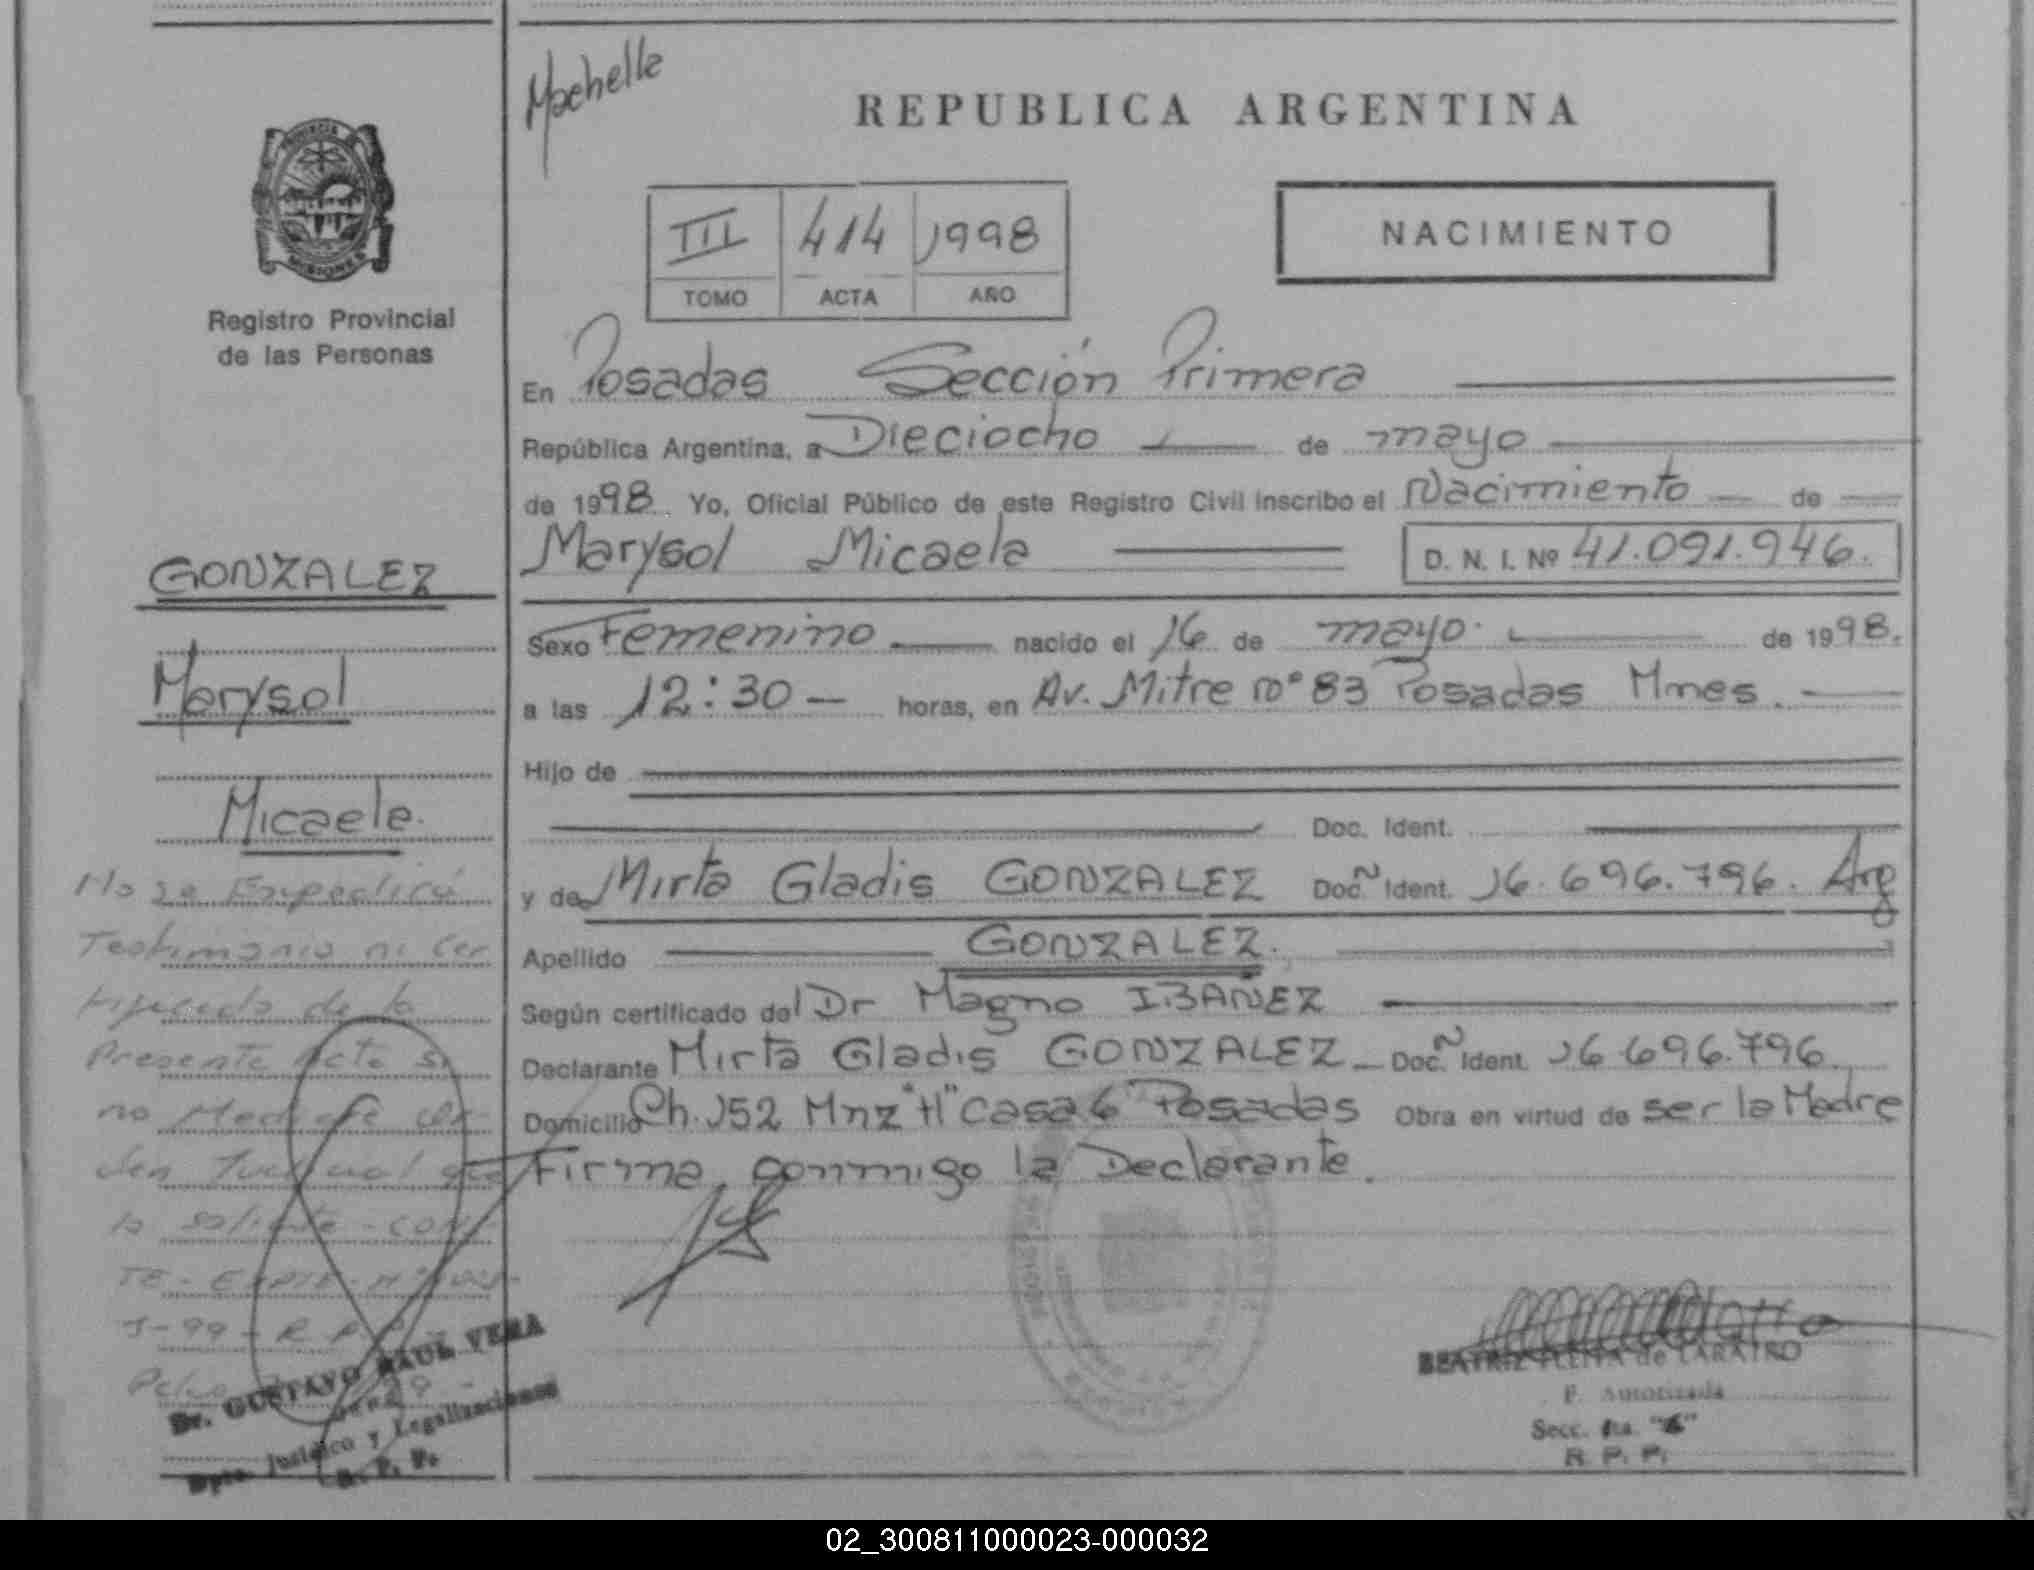 Machelle
REPUBLICA ARGENTINA
PROVINCIA
MISIONES
Registro Provincial
de las Personas
III 414 1998
TOMO ACTA AÑO
NACIMIENTO
En Posadas Sección Primera
República Argentina, a Dieciocho de mayo
de 1998. Yo, Oficial Público de este Registro Civil inscribo el Nacimiento de
Marysol Micaela D. N. I. Nº 41.091.946.
Sexo Femenino nacido el 16 de mayo de 1998.
a las 12:30 horas, en Av. Mitre nº 83 Posadas Mnes.
Hijo de
Doc. Ident.
y de Mirta Gladis GONZALEZ Doc. Ident. 16.696.796. Arg
Apellido GONZALEZ.
Según certificado del Dr Magno IBAÑEZ
Declarante Mirta Gladis GONZALEZ Doc. Ident. 16.696.796
Domicilio Ch. 152 Mnz "H" Casa 6 Posadas Obra en virtud de ser la Madre
Firma conmigo la Declarante.
GONZALEZ
Marysol
Micaela.
No se Expedirá
Testimonio ni Cer
tificado de la
Presente Acta si
no Mediante Or-
den Judicial que
lo solicite - CONS-
TE - EXPTE - Nº
J-99 - R.P.P.
Dr. GUSTAVO RAUL VERA
Dpto. Jurídico y Legalizaciones
R. P. P.
BEATRIZ de LARATRO
F. Autorizada
Secc. 1ra.
R. P. P.
02_300811000023-000032